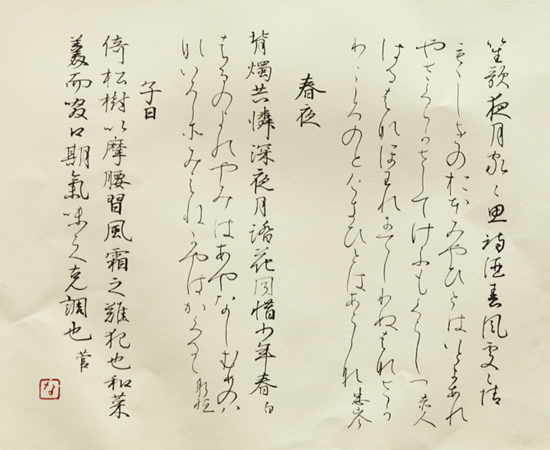 笙歌夜月家々思詩酒春風處々情
もゝしきのおほみやひとはいとまあれ
やさくらかさしてけふもくらしつ 赤人
はるはなほわれにてしりぬはなさか
りこゝろのとけきひとはあらしな 忠岑
春夜
背燭共憐深夜月踏花同惜少年春 白
はるのよのやみはあやなしむめのは
ないろこそみえねかやはかくるゝ 躬恒
子日
倚松樹以摩腰習風霜之難犯也和菜
羹而啜口期氣味之克調也 菅